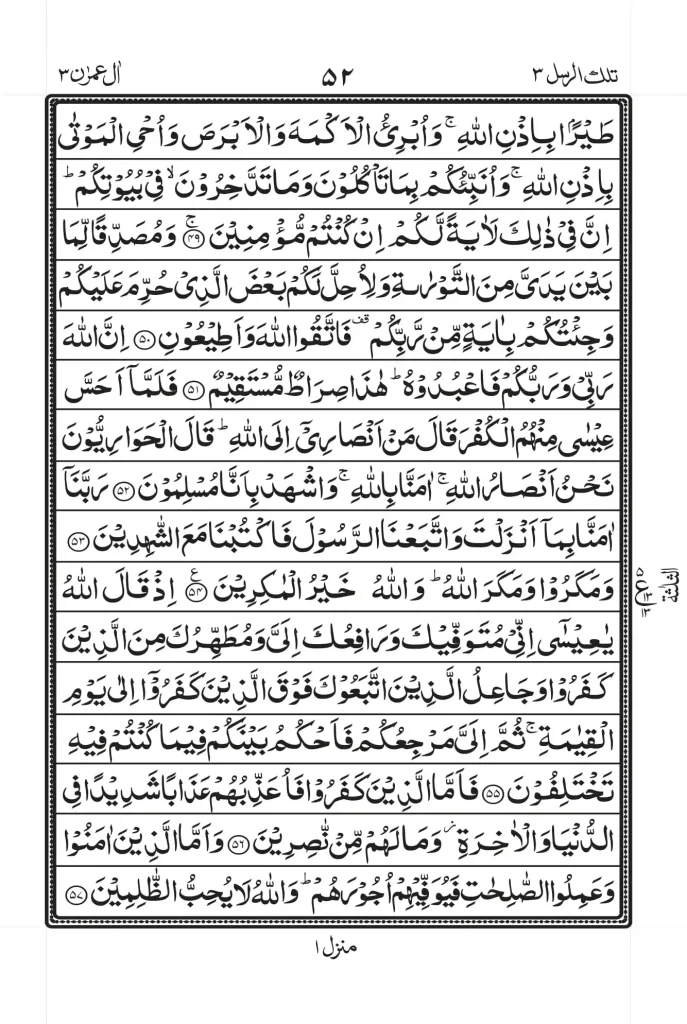 تلك الرسل ٣ ٥٢ اٰل عمرٰن ٣
طَيْرًۢا بِاِذْنِ اللّٰهِ ۚ وَاُبْرِئُ الْاَكْمَهَ وَالْاَبْرَصَ وَاُحْيِ الْمَوْتٰى
بِاِذْنِ اللّٰهِ ۚ وَاُنَبِّئُكُمْ بِمَا تَاْكُلُوْنَ وَمَا تَدَّخِرُوْنَ ۙ فِيْ بُيُوْتِكُمْ ؕ
اِنَّ فِيْ ذٰلِكَ لَاٰيَةً لَّكُمْ اِنْ كُنْتُمْ مُّؤْمِنِيْنَ ۚ ﴿٤٩﴾ وَمُصَدِّقًا لِّمَا
بَيْنَ يَدَيَّ مِنَ التَّوْرٰىةِ وَلِاُحِلَّ لَكُمْ بَعْضَ الَّذِيْ حُرِّمَ عَلَيْكُمْ
وَجِئْتُكُمْ بِاٰيَةٍ مِّنْ رَّبِّكُمْ قف فَاتَّقُوا اللّٰهَ وَاَطِيْعُوْنِ ﴿٥٠﴾ اِنَّ اللّٰهَ
رَبِّيْ وَرَبُّكُمْ فَاعْبُدُوْهُ ؕ هٰذَا صِرَاطٌ مُّسْتَقِيْمٌ ﴿٥١﴾ فَلَمَّاۤ اَحَسَّ
عِيْسٰى مِنْهُمُ الْكُفْرَ قَالَ مَنْ اَنْصَارِيْۤ اِلَى اللّٰهِ ؕ قَالَ الْحَوَارِيُّوْنَ
نَحْنُ اَنْصَارُ اللّٰهِ ۚ اٰمَنَّا بِاللّٰهِ ۚ وَاشْهَدْ بِاَنَّا مُسْلِمُوْنَ ﴿٥٢﴾ رَبَّنَاۤ
اٰمَنَّا بِمَاۤ اَنْزَلْتَ وَاتَّبَعْنَا الرَّسُوْلَ فَاكْتُبْنَا مَعَ الشّٰهِدِيْنَ ﴿٥٣﴾
وَمَكَرُوْا وَمَكَرَ اللّٰهُ ؕ وَاللّٰهُ خَيْرُ الْمٰكِرِيْنَ ﴿٥٤﴾ ع اِذْ قَالَ اللّٰهُ
يٰعِيْسٰۤى اِنِّيْ مُتَوَفِّيْكَ وَرَافِعُكَ اِلَيَّ وَمُطَهِّرُكَ مِنَ الَّذِيْنَ
كَفَرُوْا وَجَاعِلُ الَّذِيْنَ اتَّبَعُوْكَ فَوْقَ الَّذِيْنَ كَفَرُوْۤا اِلٰى يَوْمِ
الْقِيٰمَةِ ۚ ثُمَّ اِلَيَّ مَرْجِعُكُمْ فَاَحْكُمُ بَيْنَكُمْ فِيْمَا كُنْتُمْ فِيْهِ
تَخْتَلِفُوْنَ ﴿٥٥﴾ فَاَمَّا الَّذِيْنَ كَفَرُوْا فَاُعَذِّبُهُمْ عَذَابًا شَدِيْدًا فِي
الدُّنْيَا وَالْاٰخِرَةِ ؗ وَمَا لَهُمْ مِّنْ نّٰصِرِيْنَ ﴿٥٦﴾ وَاَمَّا الَّذِيْنَ اٰمَنُوْا
وَعَمِلُوا الصّٰلِحٰتِ فَيُوَفِّيْهِمْ اُجُوْرَهُمْ ؕ وَاللّٰهُ لَا يُحِبُّ الظّٰلِمِيْنَ ﴿٥٧﴾
ع ٥ ١٣ ١٣
الثلثة
منزل ١